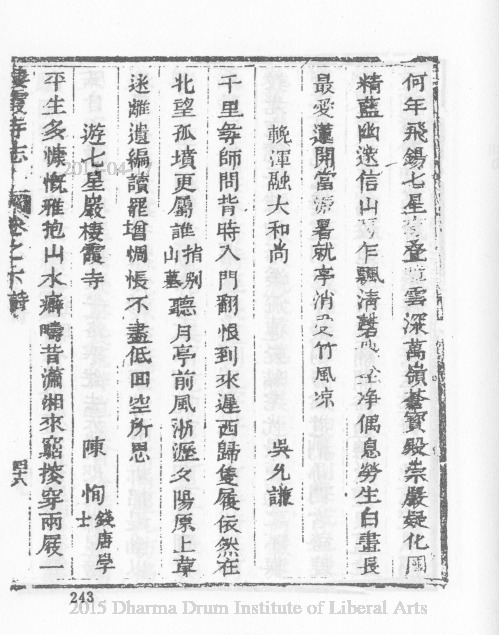 何年飛錫七星 登 雲深萬嶺蒼寶殿崇嚴疑化國
精藍幽邃信山 乍飄清磬 淨偶息勞生白晝長
最愛蓮開當 暑就亭消受竹風凉
輓渾融大和尚 吳允謙
千里尋師問背時入門翻恨到來遲西歸隻履依然在
北望孤墳更屬誰指別山墓聽月亭前風淅瀝夕陽原上草
迷離遺編讀罷增惆悵不盡低回空所思
遊七星巖棲霞寺 陳恂錢唐學士
平生多慷慨雅抱山水癖疇昔瀟湘來窮探穿兩屐一
棲霞寺志 卷之下詩 四十六
243
2015 Dharma Drum Institute of Liberal Arts